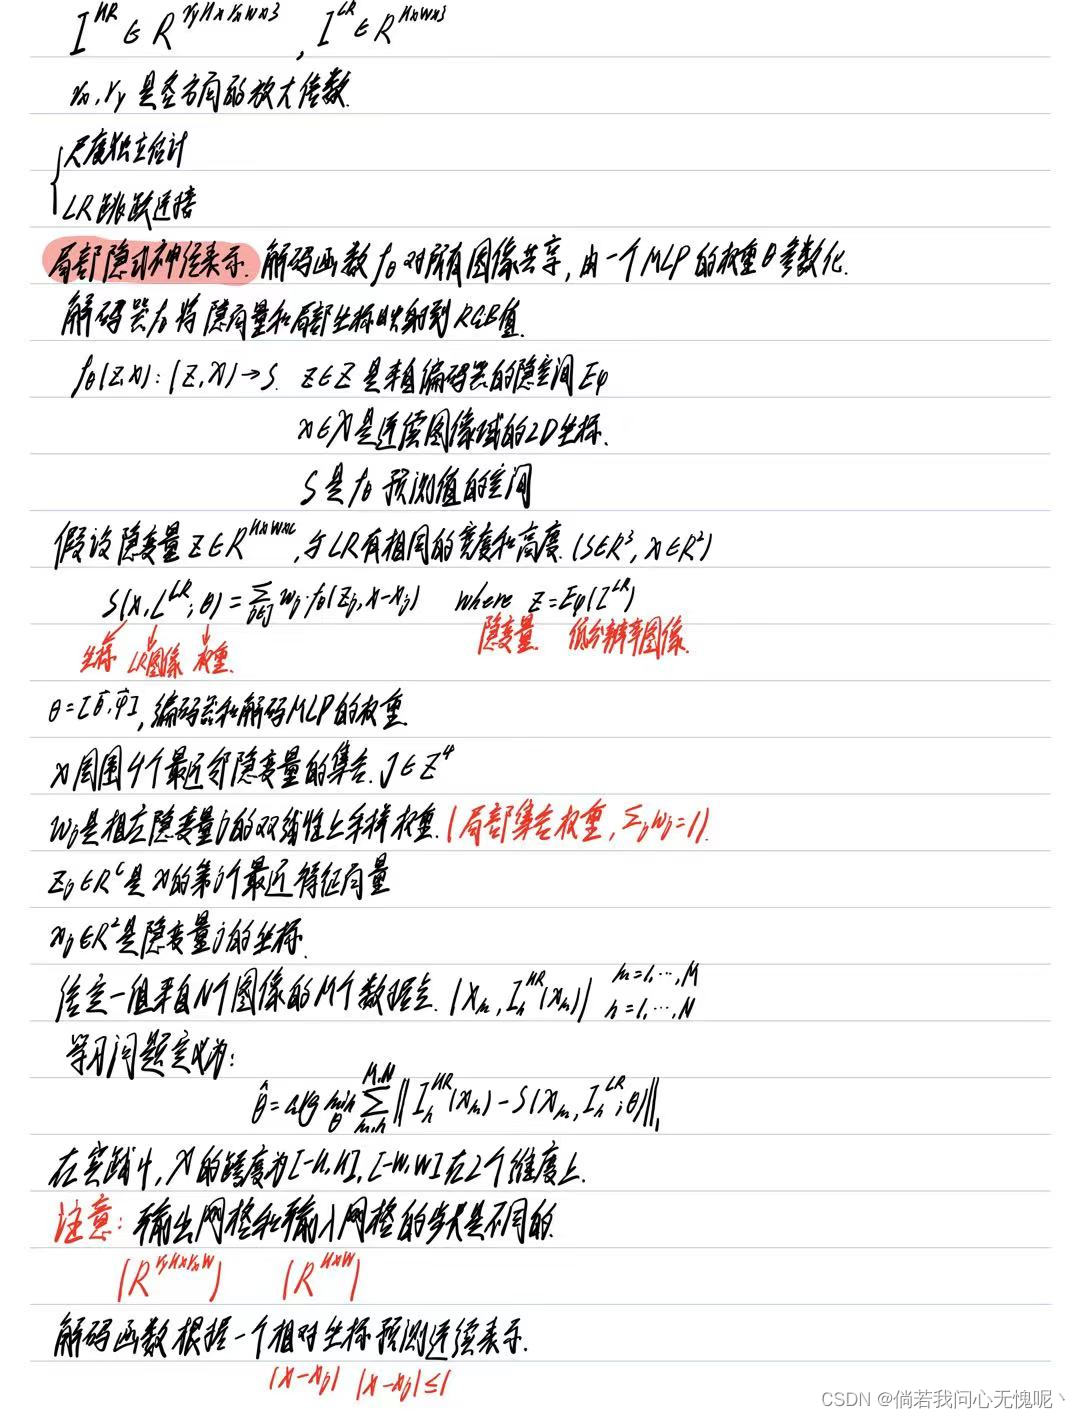 I^HR ∈ R^{r_yH×r_xW×3}, I^LR ∈ R^{H×W×3}
r_x, r_y 是各方向的放大倍数.
{ 尺度独立估计
LR跳跃连接
局部隐式神经表示. 解码函数 f_θ 对所有图像共享, 由一个MLP的权重θ参数化.
解码器f_θ将隐向量和局部坐标映射到RGB值.
f_θ(z,x): (Z,X)→S. z∈Z 是来自编码器的隐空间 E_φ
x∈X是连续图像域的2D坐标.
S是f_θ 预测值的空间
假设隐变量 z∈R^{H×W×C}, 与LR有相同的宽度和高度. (S∈R^3, X∈R^2)
S(x, I^LR; θ) = Σ_{j∈J} w_j·f_θ(z_j, x-x_j) where z=E_φ(I^LR)
坐标 LR图像 权重. 隐变量. 低分辨率图像.
θ=[θ⃗, φ⃗], 编码器和解码MLP的权重.
x周围4个最近邻隐变量的集合. J∈Z^4
w_j是相应隐变量j的双线性上采样权重. (局部集合权重, Σ_j w_j=1).
z_j∈R^C是 x的第j个最近特征向量
x_j∈R^2是隐变量j的坐标.
给定一组来自N个图像的M个数据点. (x_m, I_n^HR(x_m)) m=1,…,M
n=1,…,N
学习问题定义为:
θ̂ = arg min_θ Σ_{m,n}^{M,N} ‖I_n^HR(x_m) - S(x_m, I_n^LR; θ)‖_1
在实践中, X的跨度为[-H,H], [-W,W]在2个维度上.
注意: 输出网格和输入网格的步长是不同的.
(R^{r_yH×r_xW}) (R^{H×W})
解码函数根据一个相对坐标预测连续表示.
(x-x_j) |x-x_j|≤1
CSDN @倘若我问心无愧呢丶